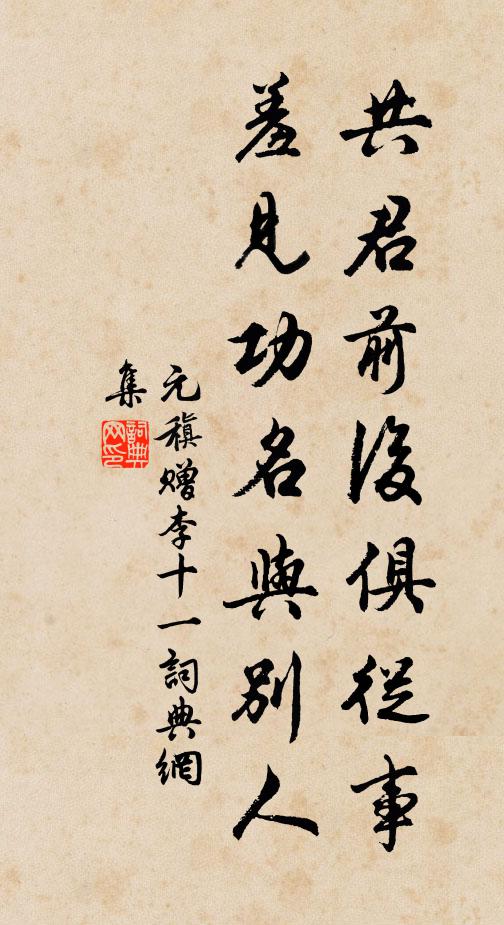 共君前後俱從事
羞見功名與別人
元稹贈李十一詞典網
集
詞典
网印